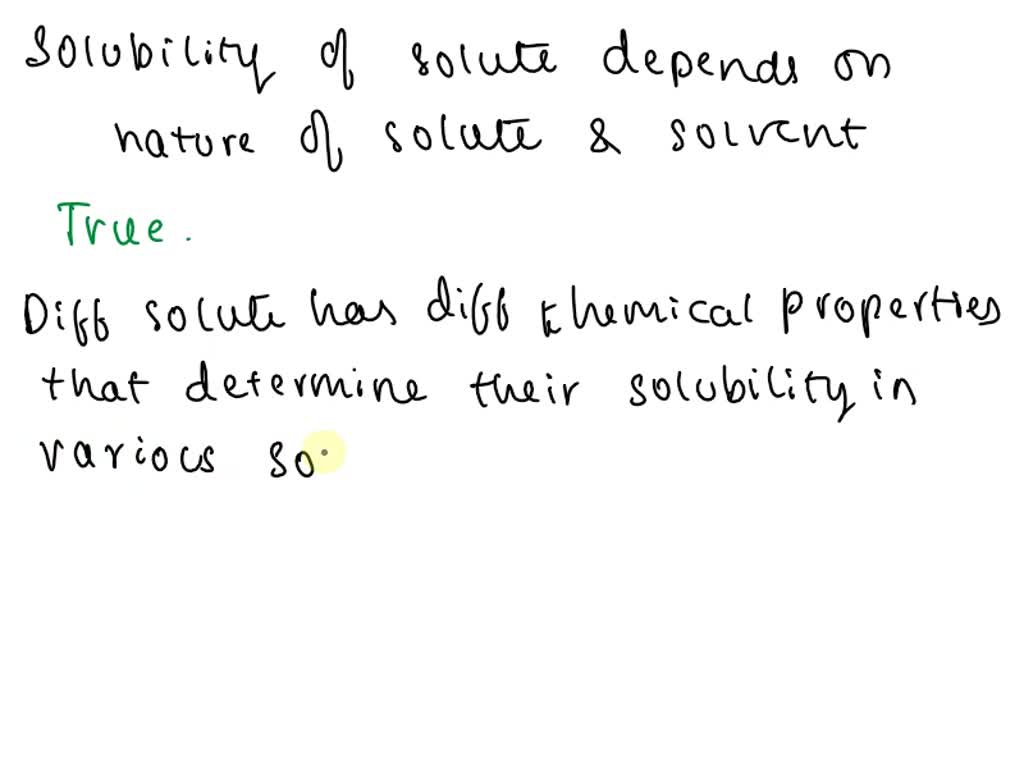 Solubility of solute depends on
nature of solute & solvent
True.
Diff solute has diff chemical properties
that determine their solubility in
various so